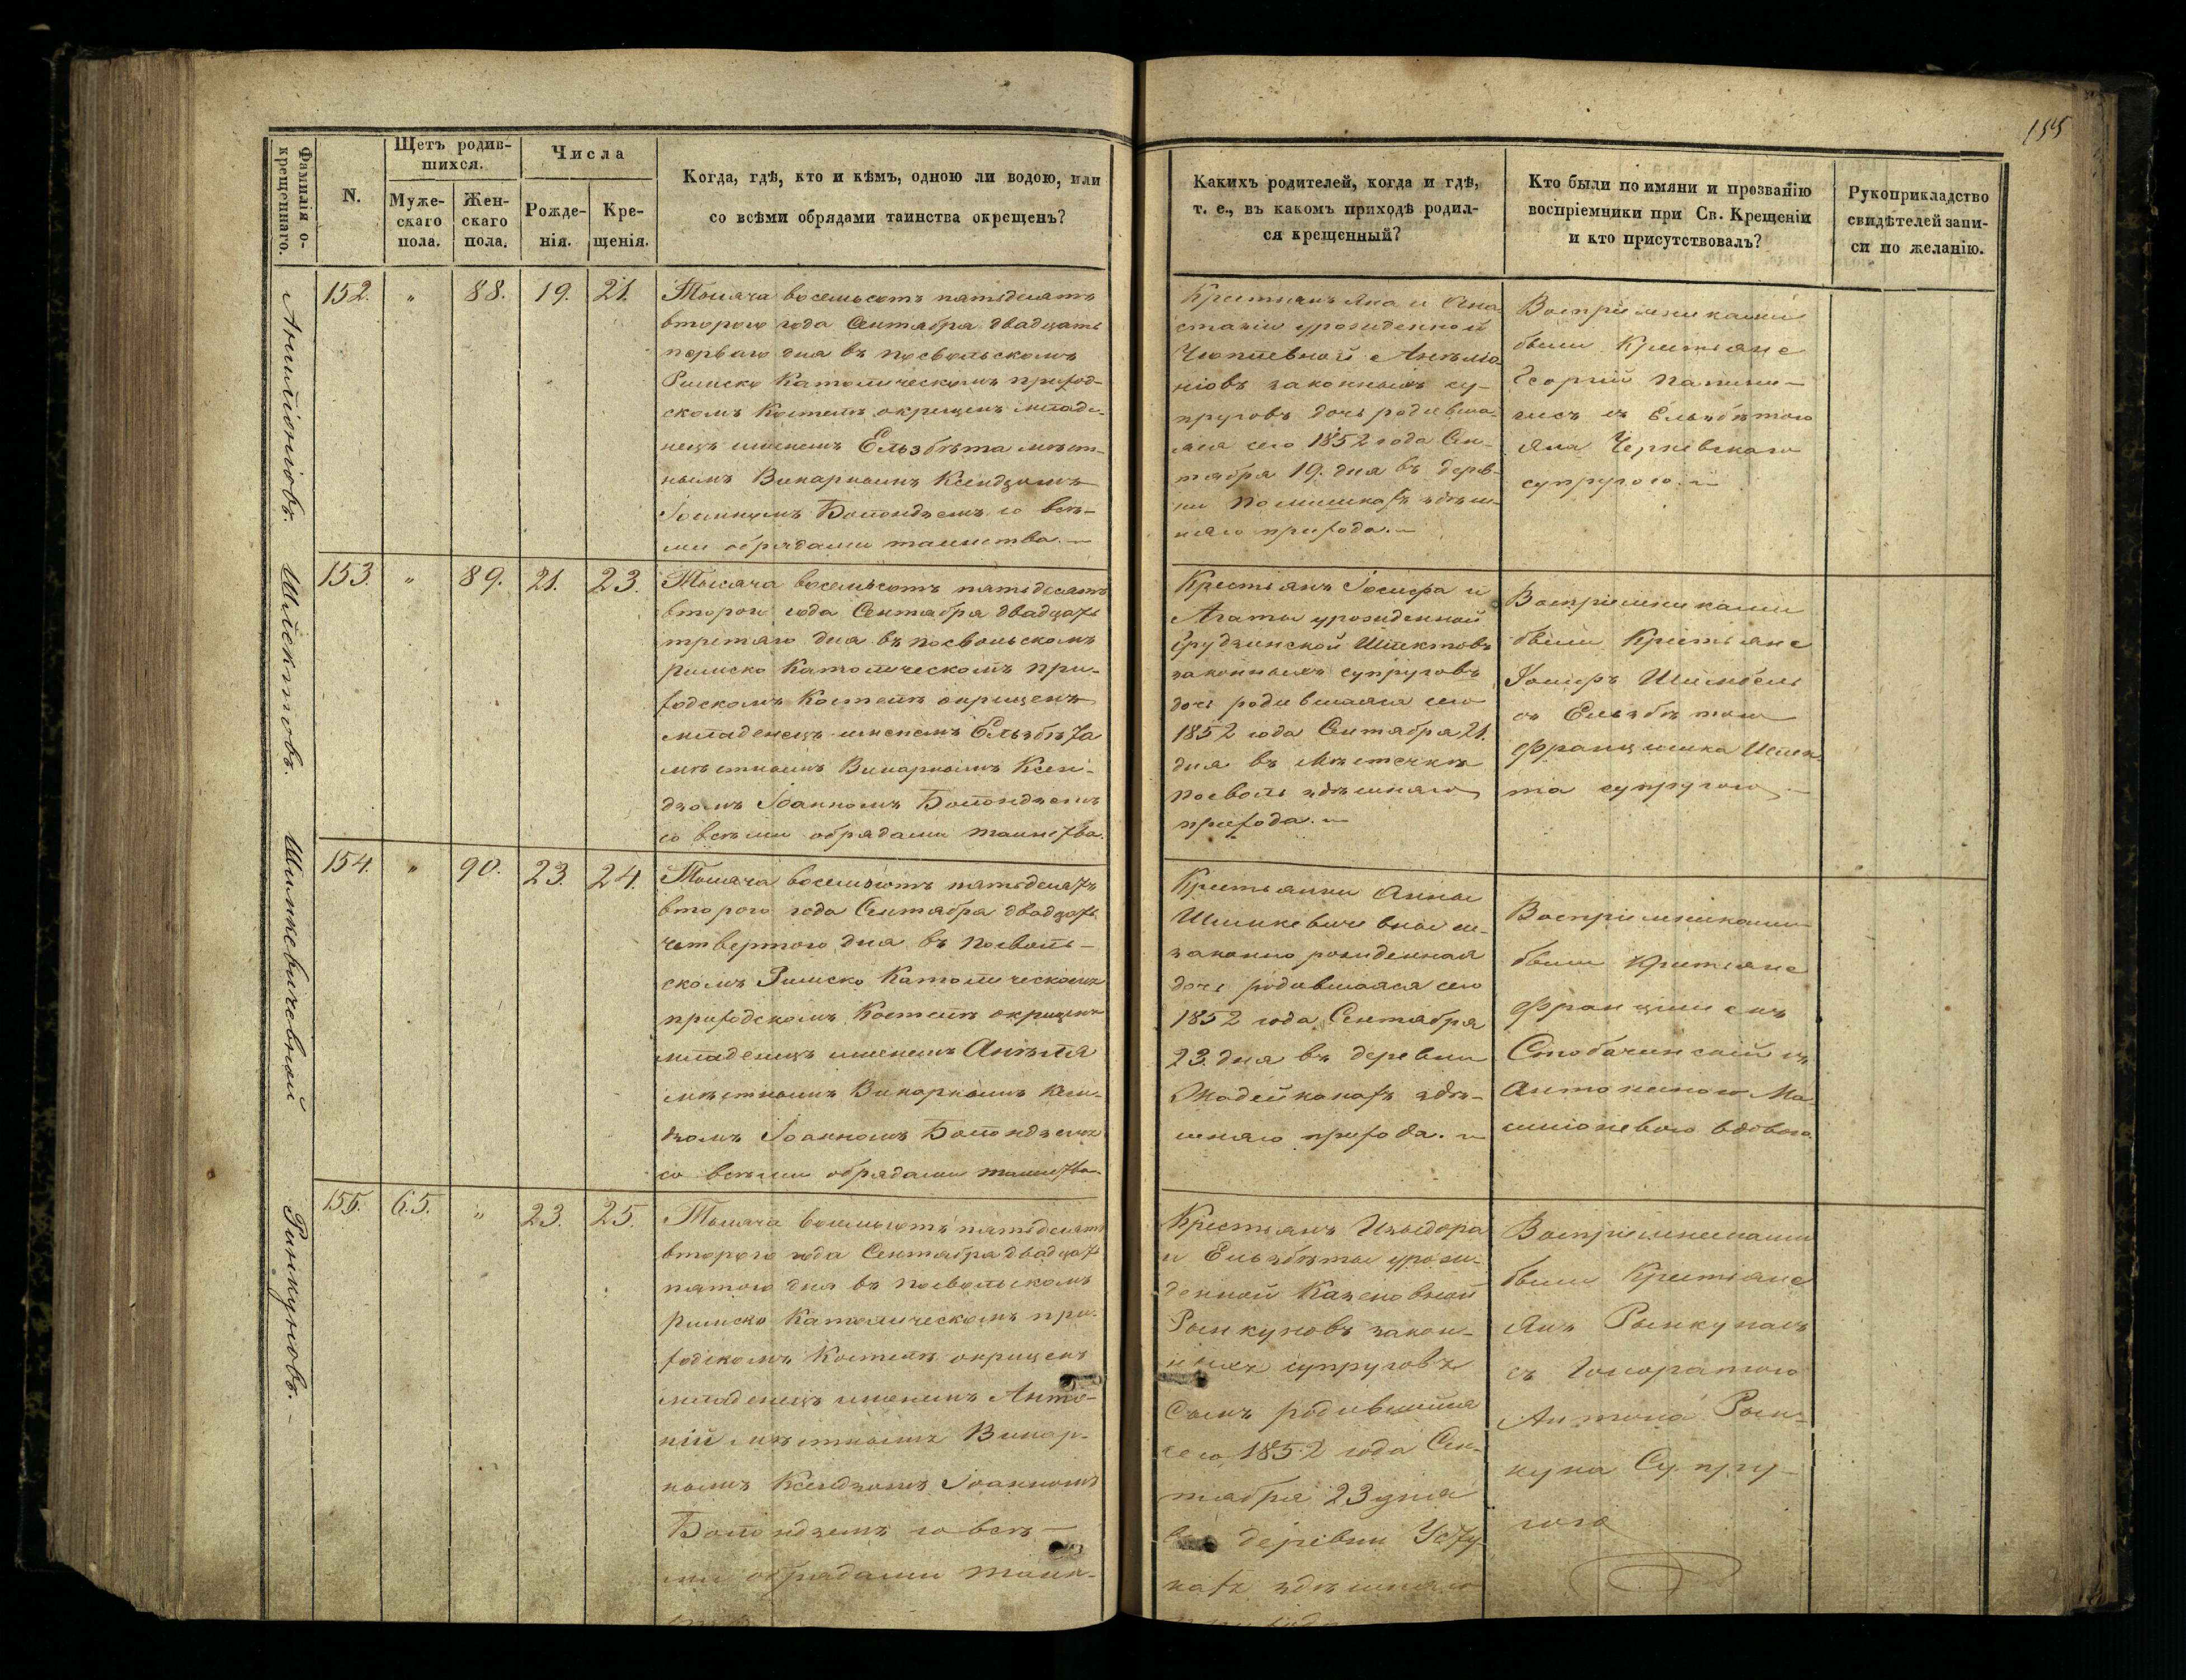 155
Фамилія о-
крещеннаго.
N.
Щетъ родив-
шихся.
Муже-
скаго
пола.
Жен-
скаго
пола.
Числа
Рожде-
нія.
Кре-
щенія.
Когда, гдѣ, кто и кѣмъ, одною ли водою, или
со всѣми обрядами таинства окрещенъ?
Какихъ родителей, когда и гдѣ,
т. е., въ какомъ приходѣ родил-
ся крещенный?
Кто были по имяни и прозванію
воспріемники при Св. Крещеніи
и кто присутствовалъ?
Рукоприкладство
свидѣтелей запи-
си по желанію.
152. " 88. 19. 21.
Тысяча восемьсотъ пятьдесятъ
второго года Сентября двадцать
перваго дня въ Посвольскомъ
Римско Католическомъ приход-
скомъ Костелѣ окрещенъ младе-
нецъ именемъ Ельзбѣта мѣст-
нымъ Викарнымъ Ксендзомъ
Іоанномъ Болондземъ со всѣ-
ми обрядами таинства.
Крестьянъ Яна и Ана-
стазіи урожденной
законныхъ су-
пруговъ дочь родивша-
яся сего 1852 года Сен-
тября 19. дня въ дерев-
ни здѣш-
няго прихода.
Воспріемниками
были Крестьяне
Георгій
съ Ельзбѣтою
Яна
супругою.
Шлектовъ.
153. " 89. 21. 23.
Тысяча восемьсотъ пятьдесятъ
второго года Сентября двадцать
третяго дня въ Посвольскомъ
Римско Католическомъ при-
ходскомъ Костелѣ окрещенъ
младенецъ именемъ Ельзбѣта
мѣстнымъ Викарнымъ Ксен-
дзомъ Іоанномъ Болондземъ
со всѣми обрядами таинства.
Крестьянъ Іосифа и
Агаты урожденной
Грудзинской Шлектовъ
законныхъ супруговъ
дочь родившаяся сего
1852 года Сентября 21.
дня въ Мѣстечкѣ
Посволь здѣшняго
прихода.
Воспріемниками
были Крестьяне
съ Ельзбѣтою
Францишка
супругою
Шимкевичевной
154. " 90. 23. 24.
Тысяча восемьсотъ пятьдесятъ
второго года Сентября двадцать
четвертого дня въ Посволь-
скомъ Римско Католическомъ
приходскомъ Костелѣ окрещенъ
младенецъ именемъ Анѣля
мѣстнымъ Викарнымъ Ксен-
дзомъ Іоанномъ Болондземъ
со всѣми обрядами таинства.
Крестьянки Анны
Шимкевичевны не-
законно рожденная
дочь родившаяся сего
1852 года Сентября
23. дня въ деревни
Жадейканахъ здѣ-
шняго прихода.
Воспріемниками
были Крестьяне
Францишекъ
съ
Антониною
вдовою.
Ринкуновъ.
155. 65. " 23. 25.
Тысяча восемьсотъ пятьдесятъ
второго года Сентября двадцать
пятого дня въ Посвольскомъ
Римско Католическомъ при-
ходскомъ Костелѣ окрещенъ
младенецъ именемъ Анто-
ній мѣстнымъ Викар-
нымъ Ксендзомъ Іоанномъ
Болондземъ со всѣ-
ми обрядами таин-
Крестьянъ Изыдора
и Ельзбѣты урож-
денной
Рынкуновъ закон-
ныхъ супруговъ
сынъ родившійся
сего 1852 года Сен-
тября 23 дня
въ деревни Усту-
кахъ здѣшняго
Воспріемниками
были Крестьяне
Янъ Рынкунасъ
съ Гоноратою
Антона Рын-
куна Супру-
гою